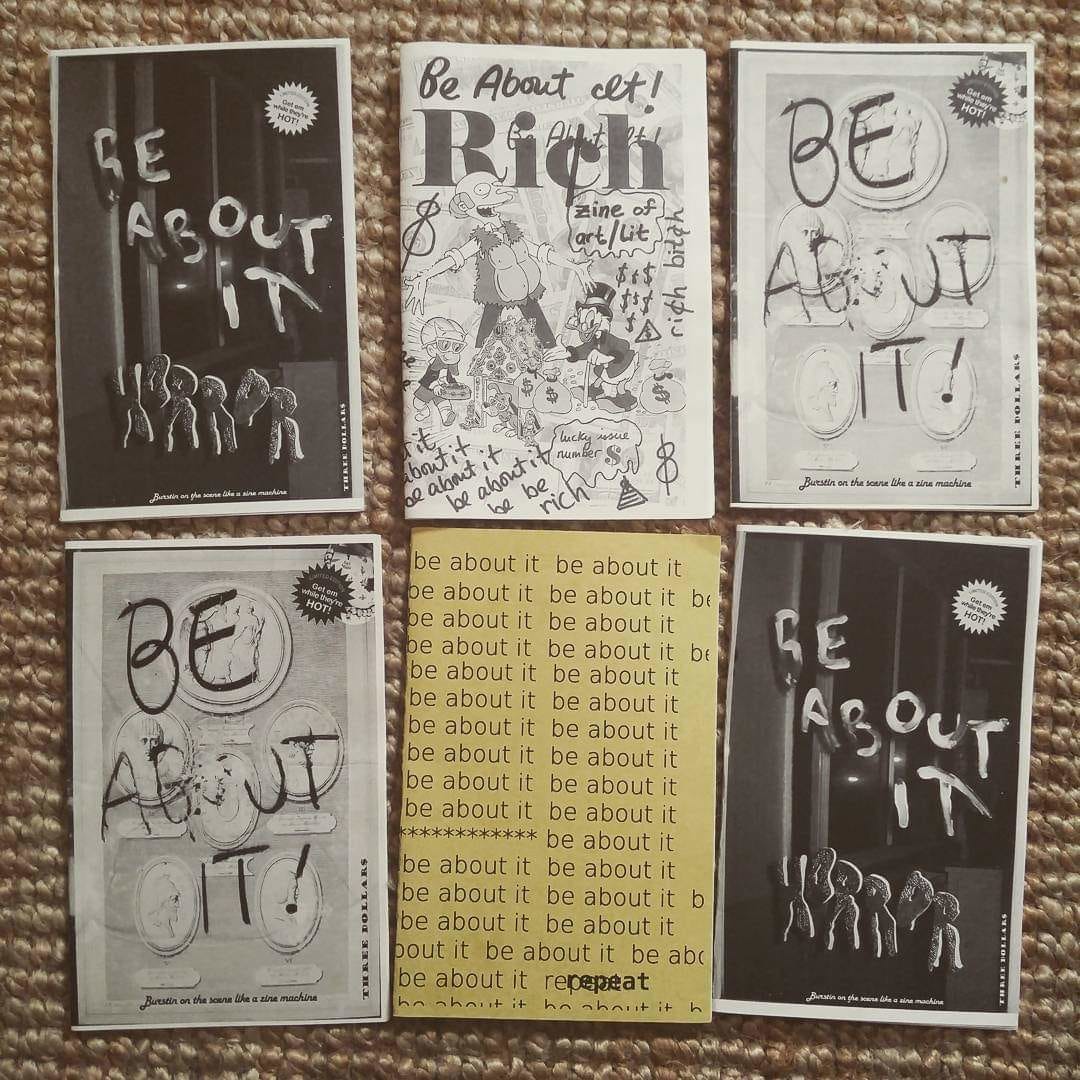 BE
ABOUT
IT
HORROR
LIMITED EDITION
Get em
while they're
HOT!
THREE DOLLARS
Burstin on the scene like a zine machine
Be About It!
Rich
Be About It!
zine of
art/lit
$
$ $ $
$ $ $
$
rich bitch
lucky issue
number 8
$
$ $
t it
about it
be about it
be about it
be be
rich
BE
ABOUT
IT!
Get em
while they're
HOT!
THREE DOLLARS
Burstin on the scene like a zine machine
BE
ABOUT
IT!
LIMITED EDITION
Get em
while they're
HOT!
THREE DOLLARS
Burstin on the scene like a zine machine
be about it be about it
be about it be about it be
be about it be about it
be about it be about it be
be about it be about it
be about it be about it
be about it be about it
be about it be about it
be about it be about it
be about it be about it
************ be about it
be about it be about it
be about it be about it b
be about it be about it
bout it be about it be abo
be about it repeat
repeat
be about it be about it b
BE
ABOUT
IT
HORROR
LIMITED EDITION
Get em
while they're
HOT!
THREE DOLLARS
Burstin on the scene like a zine machine